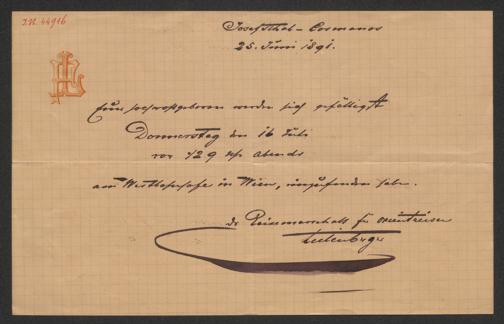 I.N. 44916
Josefsthal – Cosmanos
25. Juni 1891.
Euer Hochwohlgeboren werden sich gefälligst
Donnerstag den 16 Juli
vor 1/2 9 Uhr abends
am Westbahnhofe in Wien, einzufinden haben.
der Reisemarschall für Orientreisen